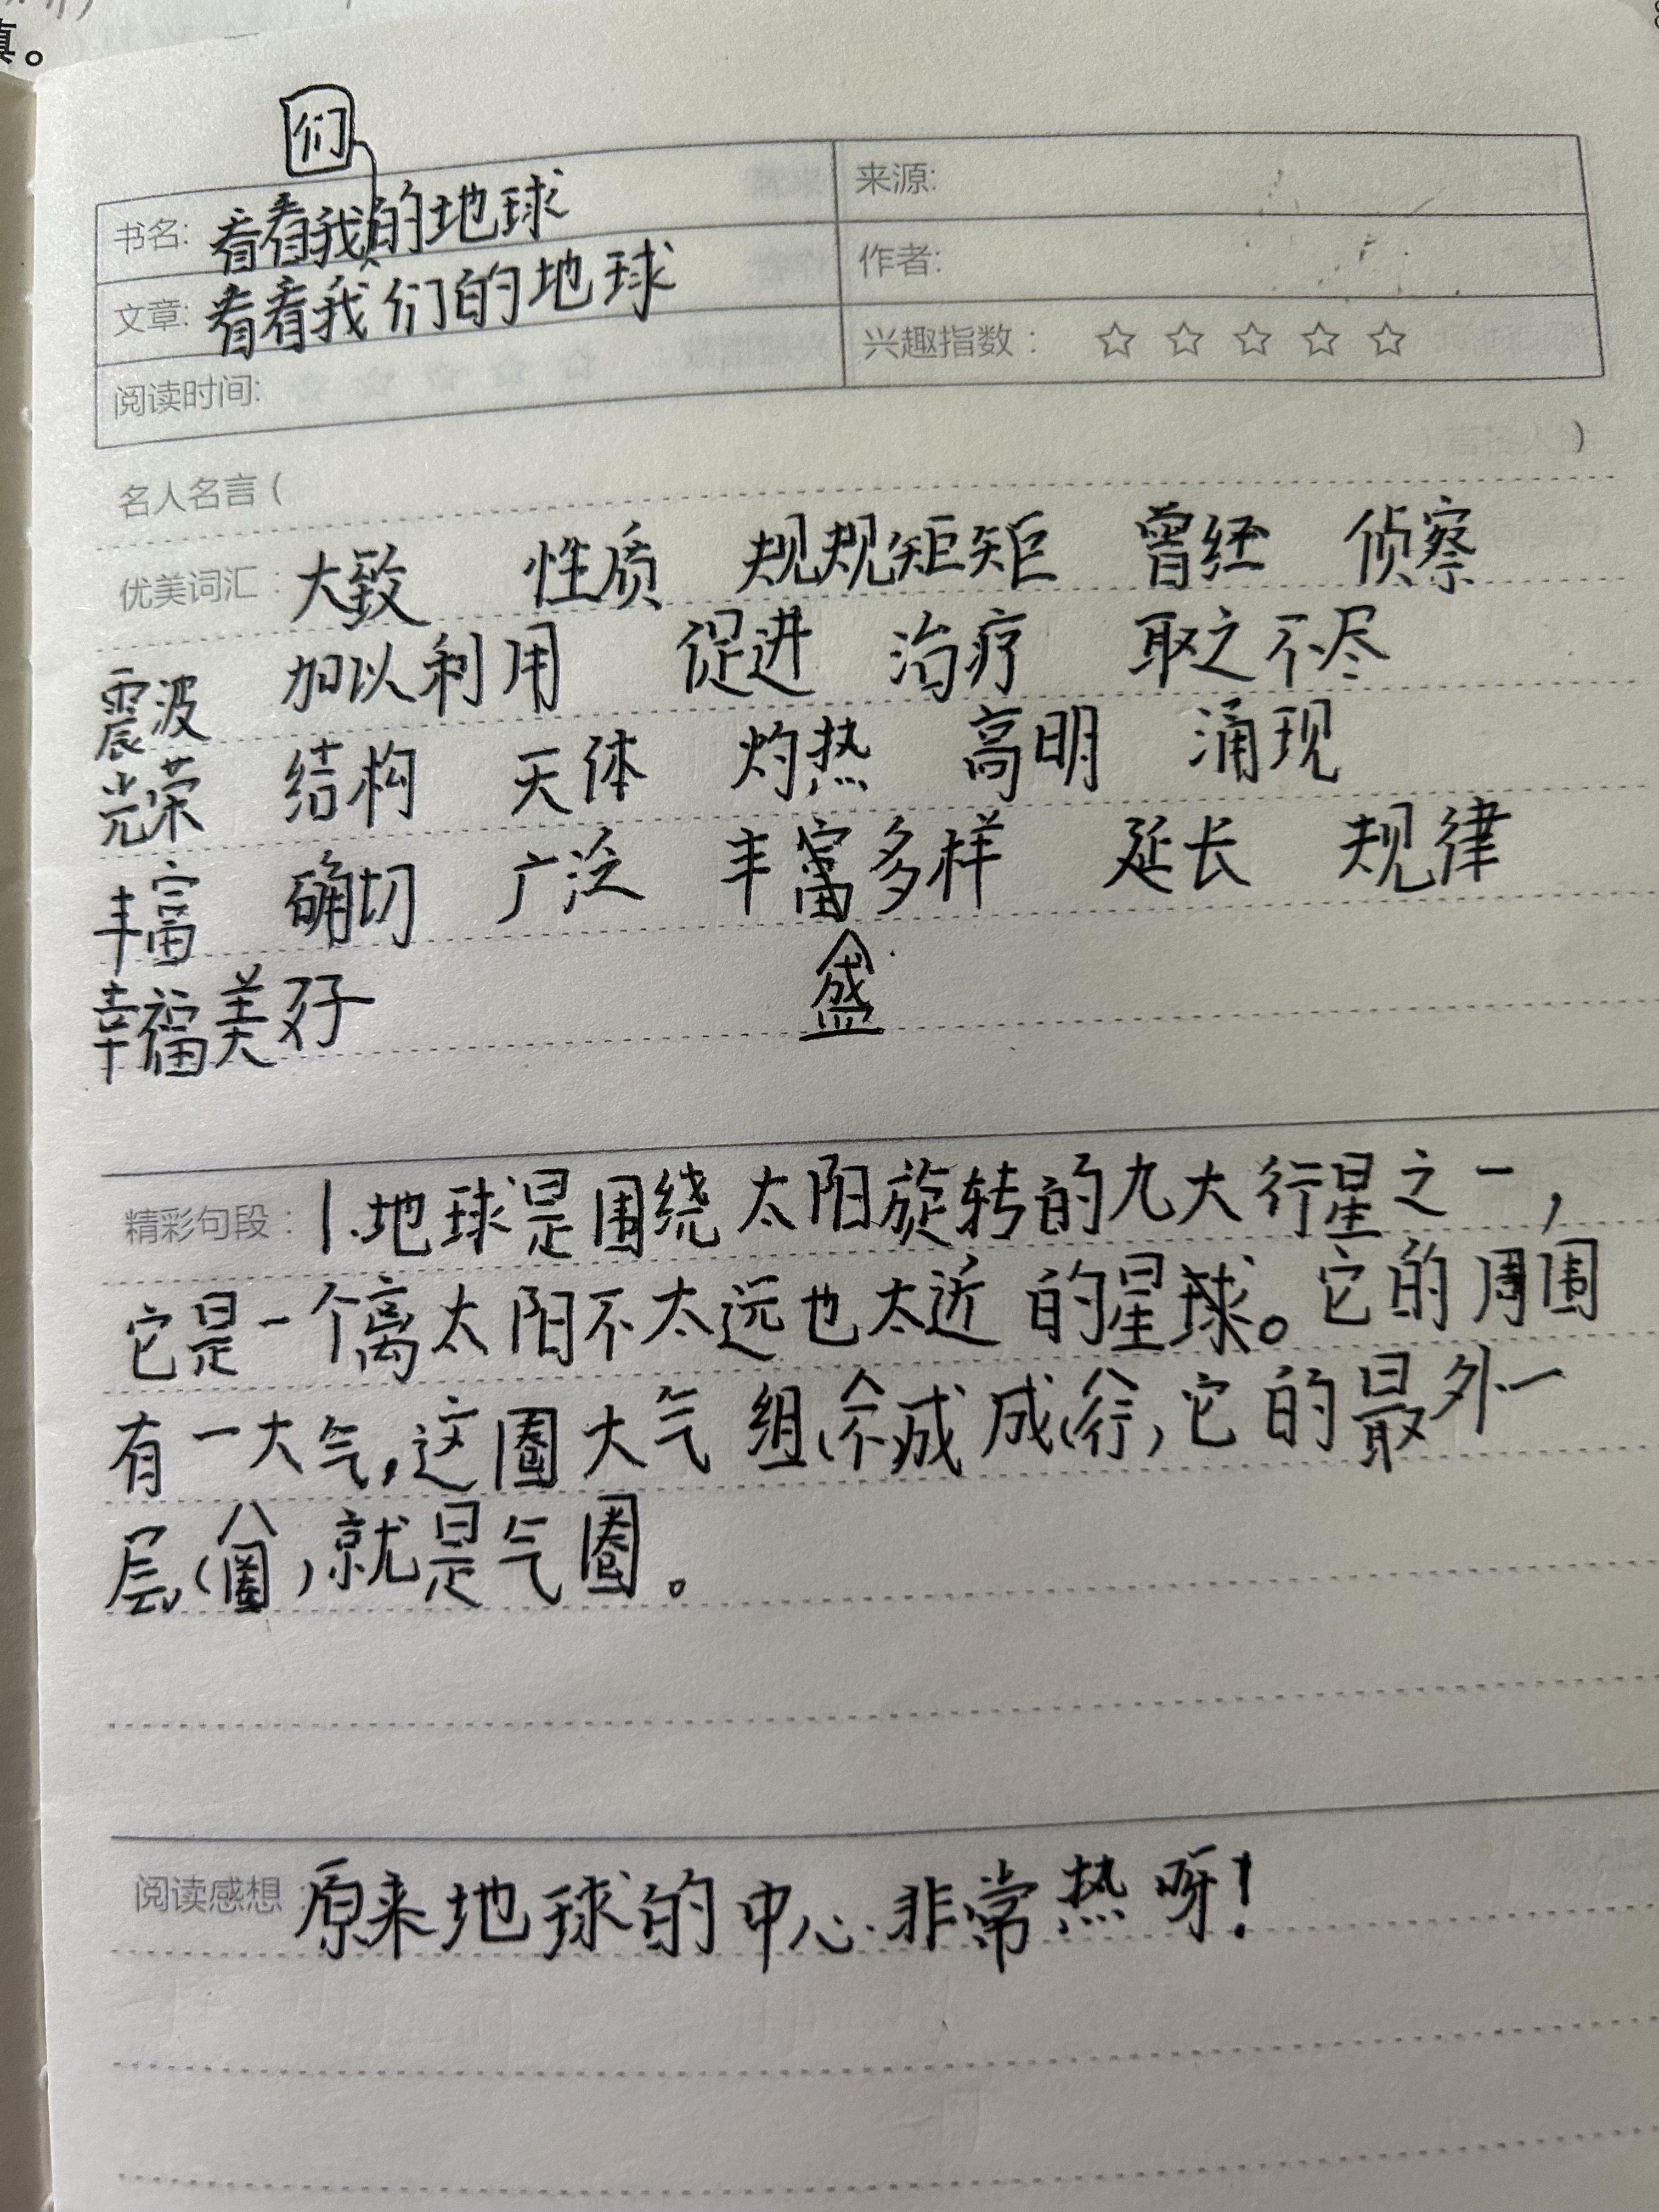 真。
们
书名: 看看我的地球
来源:
文章: 看看我们的地球
作者:
阅读时间:
兴趣指数： ☆ ☆ ☆ ☆ ☆
名人名言 ( )
优美词汇： 大致 性质 规规矩矩 曾经 侦察
震波 加以利用 促进 治疗 取之不尽
光荣 结构 天体 灼热 高明 涌现
丰富 确切 广泛 丰富多样 延长 规律
幸福美好 盛
精彩句段： 1.地球是围绕太阳旋转的九大行星之一，
它是一个离太阳不太远也太近的星球。它的周围
有一大气,这圈大气组 成 成 ，它的最外一
层(圈)就是气圈。
阅读感想： 原来地球的中心非常热呀！